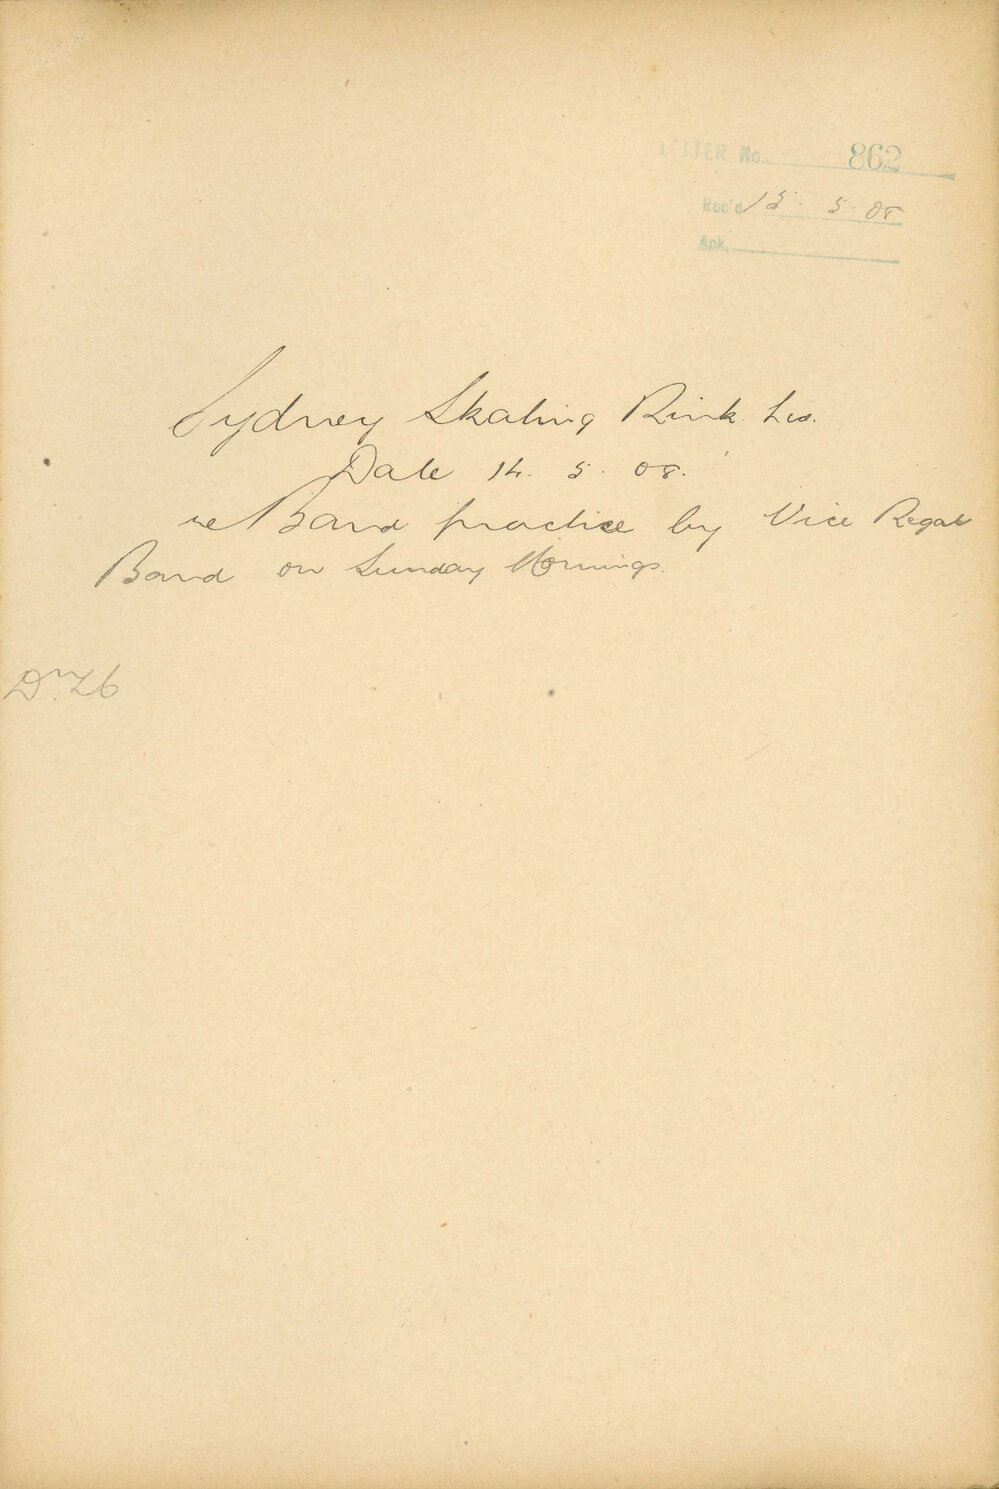 LETTER No. 862
Rec'd 15. 5. 08
Ack.
Sydney Skating Rink Ltd.
Date 14. 5. 08.
re Band practice by Vice Regal
Band on Sunday Mornings.